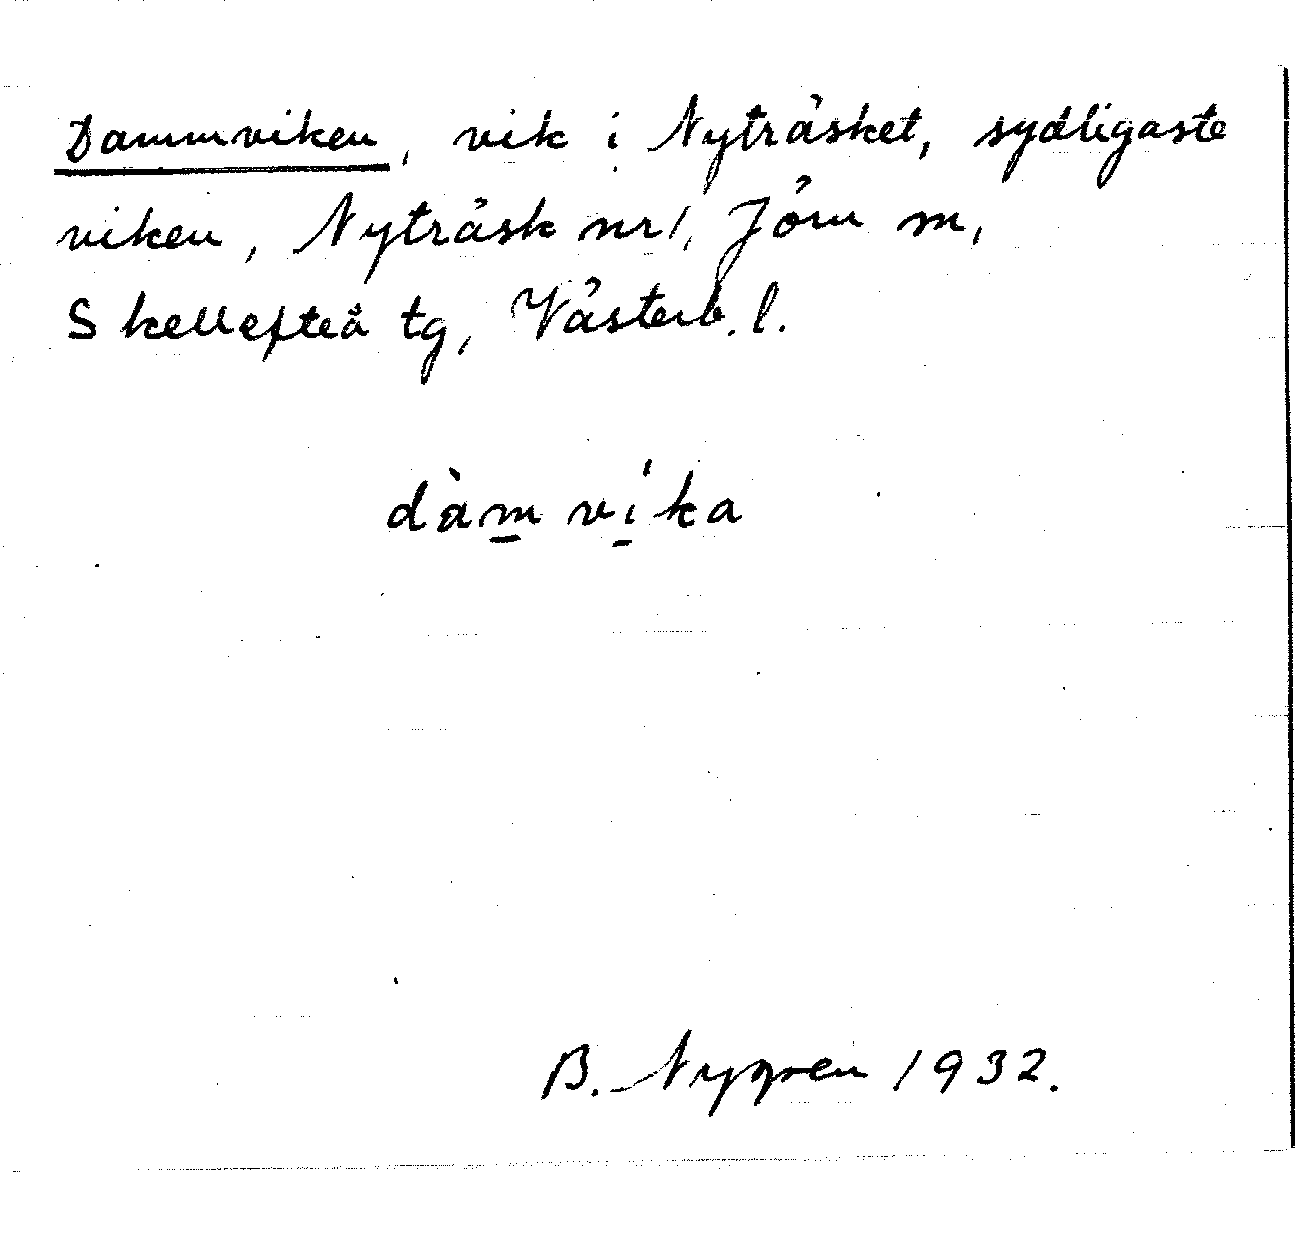 Dammviken, vik i Nyträsket, sydligaste
viken, Nyträsk nr 1, Jörn m,
Skellefteå tg, Västerb. l.
dàm̲ ví̲ka
B. Nygren 1932.